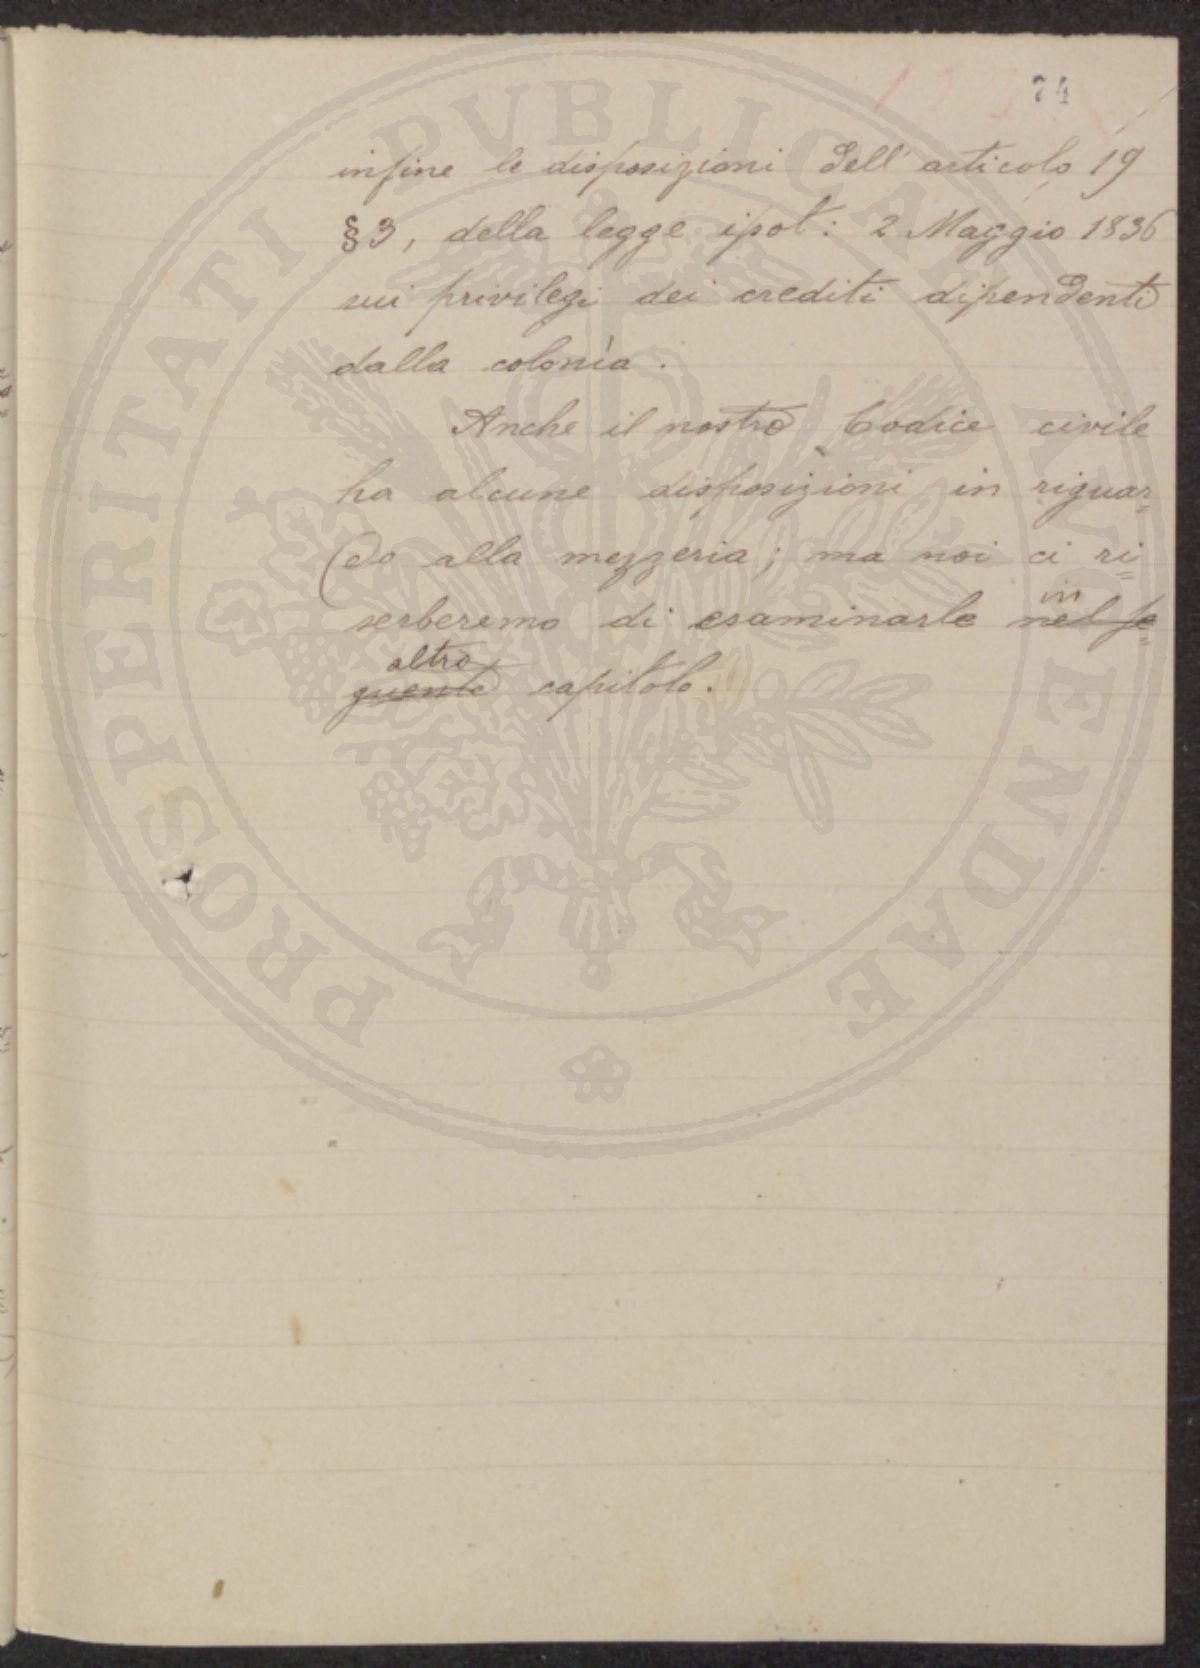 74
infine le disposizioni dell'articolo 19
§3, della legge ipot: 2 Maggio 1836
sui privilegi dei crediti dipendenti
dalla colonìa.
Anche il nostro Codice civile
ha alcune disposizioni in riguar=
do alla mezzeria; ma noi ci ri=
in
serberemo di esaminarle nel se=
altro
guente capitolo.
PROSPERITATI PUBLICAE AUGENDAE